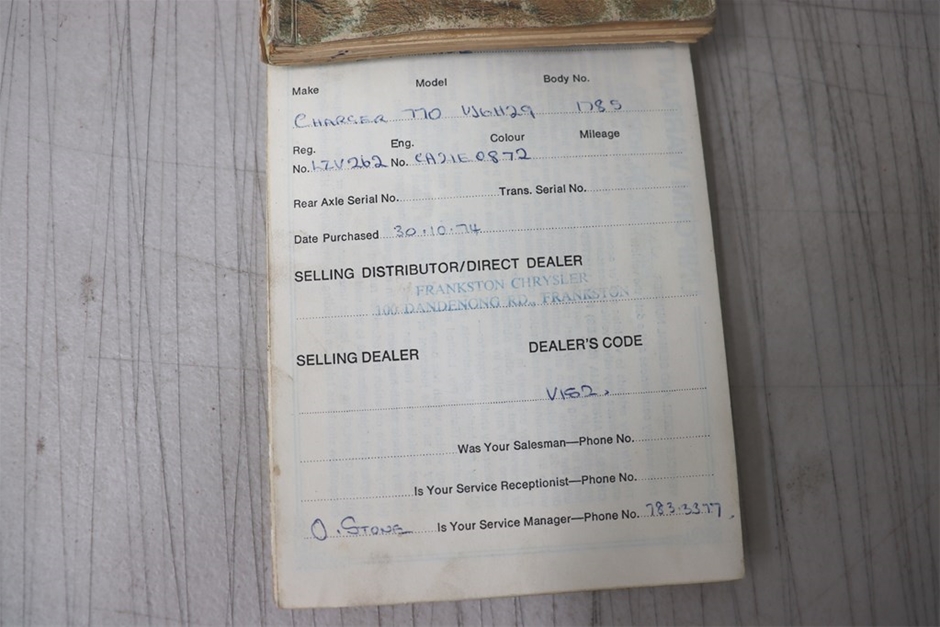 Make Model Body No.
CHARGER 770 VJ6H29 1785
Reg. Eng. Colour Mileage
No. LZV262 No. CA21E 0872
Rear Axle Serial No. Trans. Serial No.
Date Purchased 30.10.74
SELLING DISTRIBUTOR/DIRECT DEALER
FRANKSTON CHRYSLER
100 DANDENONG RD., FRANKSTON
SELLING DEALER DEALER'S CODE
V152.
Was Your Salesman—Phone No.
Is Your Service Receptionist—Phone No.
O. STONE Is Your Service Manager—Phone No. 783.3377.